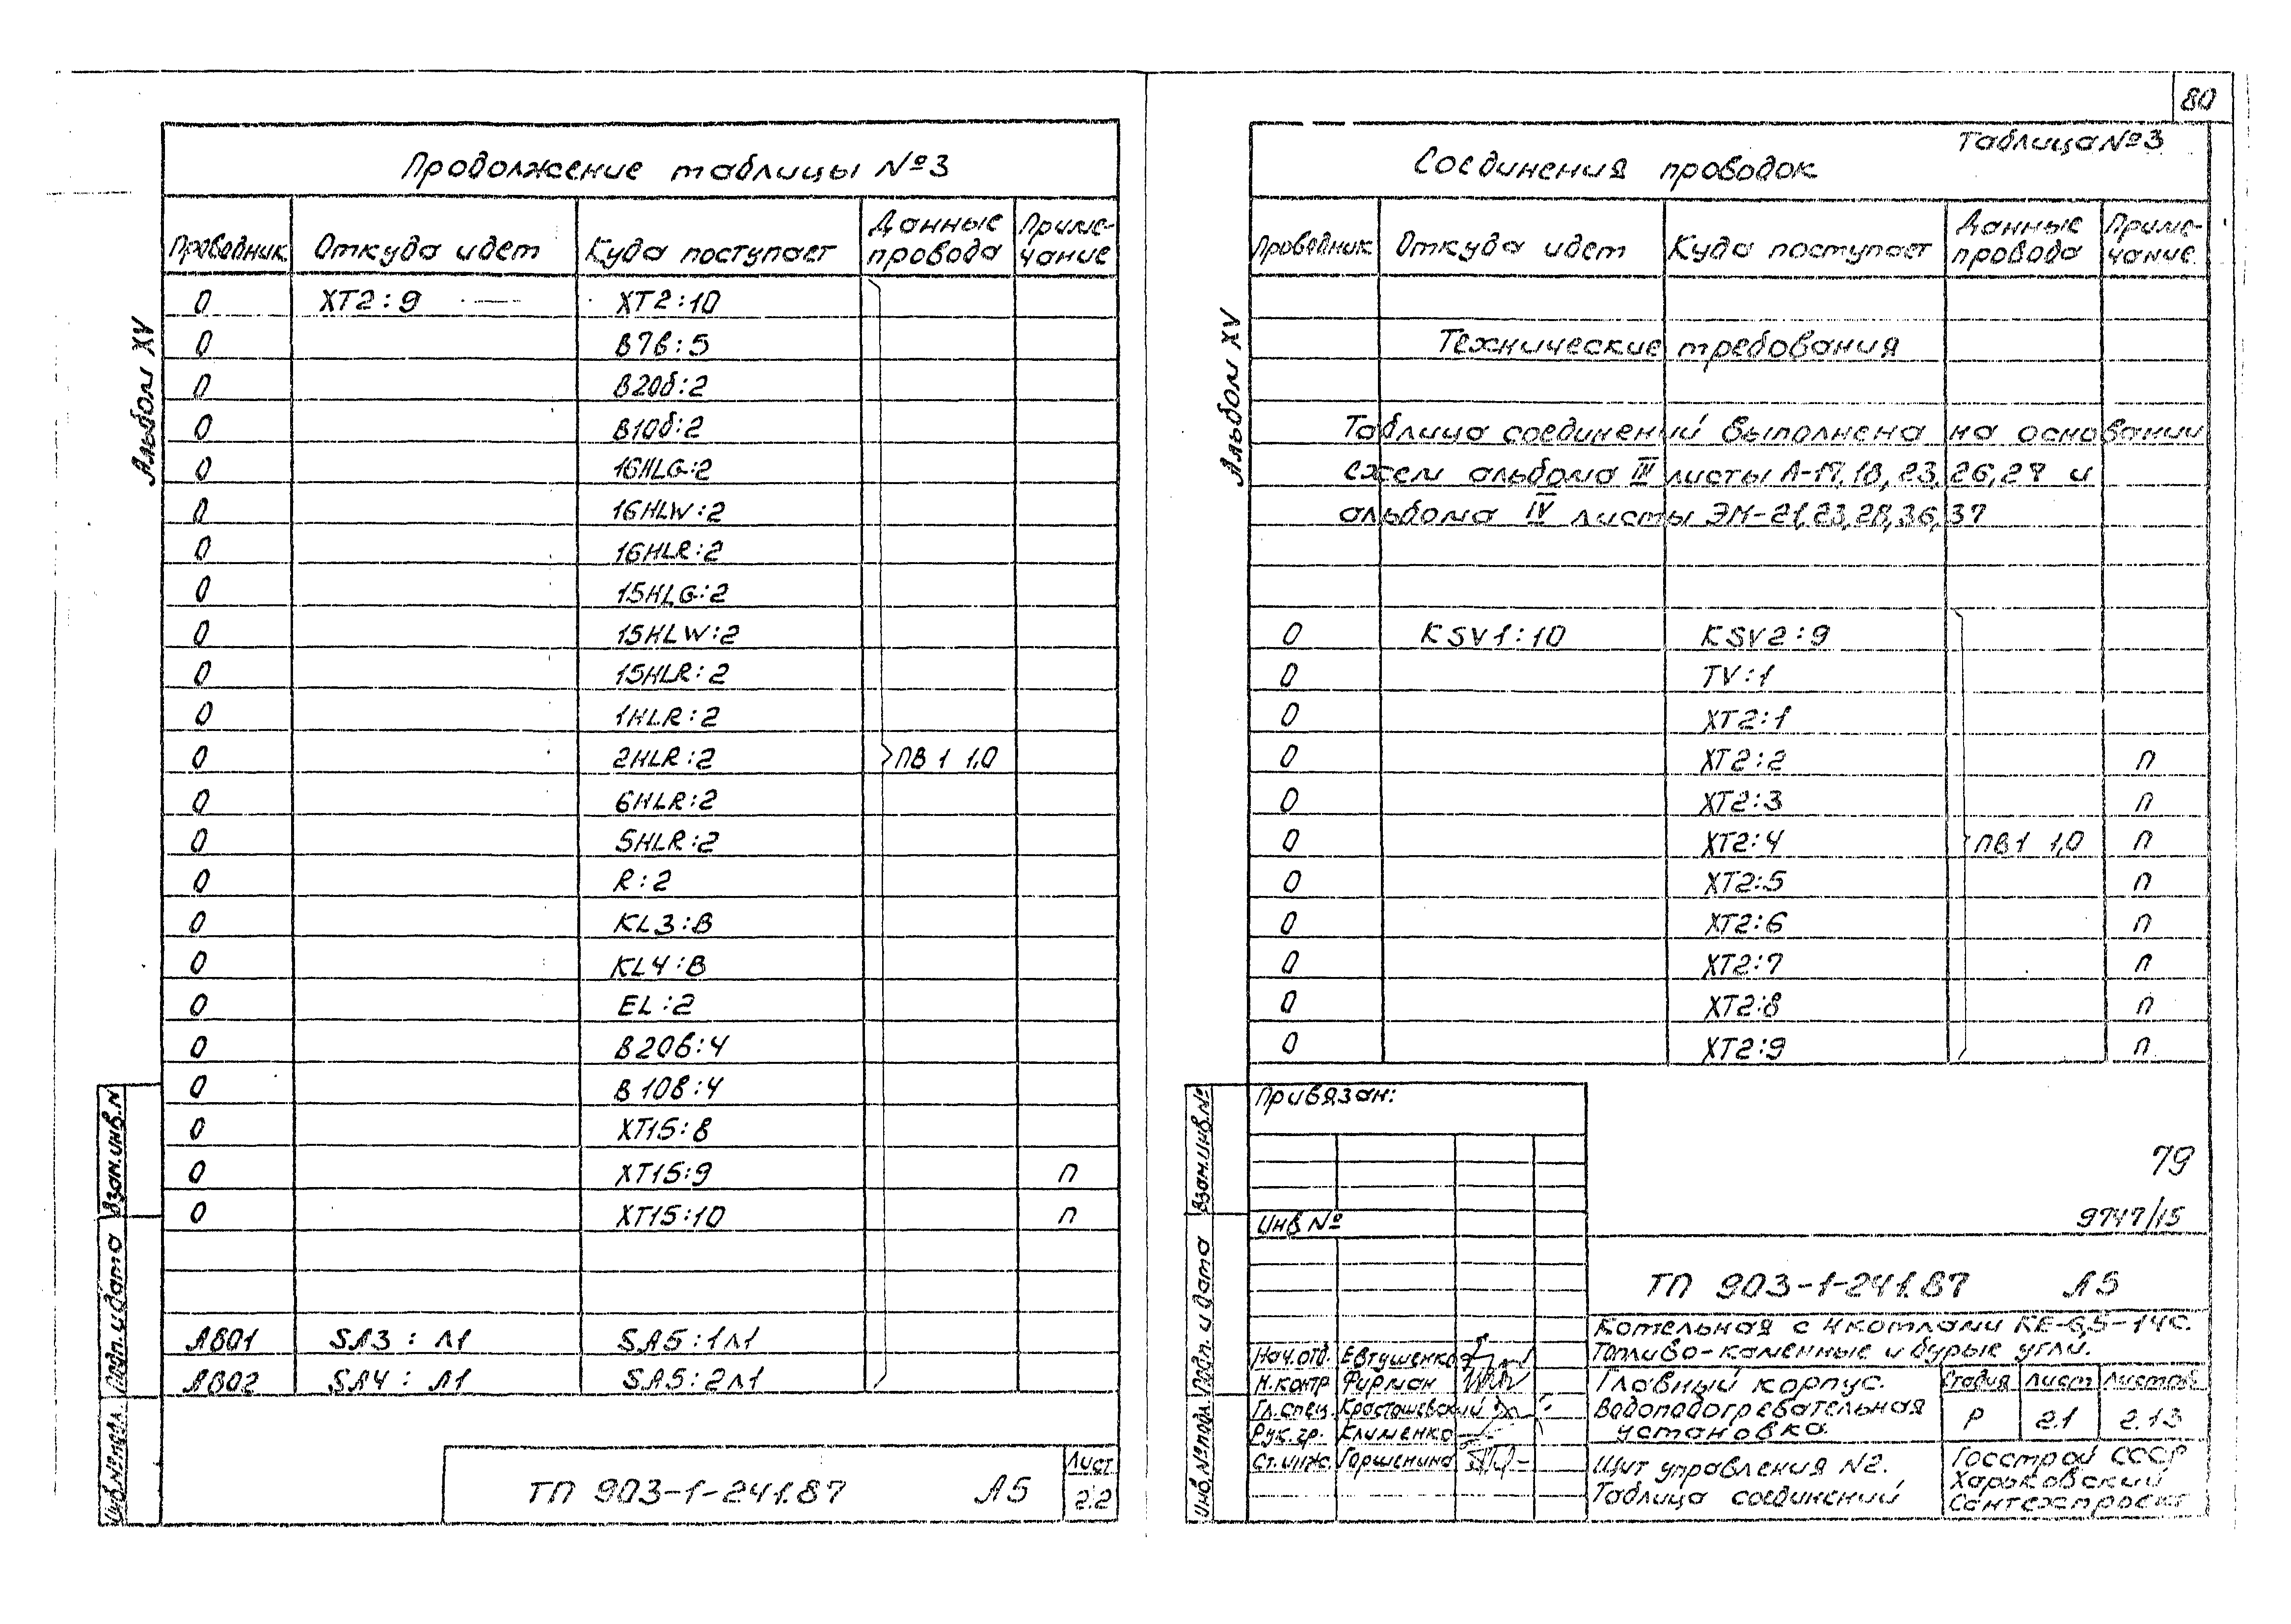 80
Продолжение таблицы №3
Проводник Откуда идет Куда поступает Данные провода Приме-чание
0 XT2:9 XT2:10
0 В7в:5
0 В20б:2
0 В10б:2
0 16HLG:2
0 16HLW:2
0 16HLR:2
0 15HLG:2
0 15HLW:2
0 15HLR:2
0 1HLR:2
0 2HLR:2 ПВ 1 1,0
0 6HLR:2
0 5HLR:2
0 R:2
0 KL3:В
0 KL4:В
0 EL:2
0 В20в:4
0 В10в:4
0 XT15:8
0 XT15:9 п
0 XT15:10 п
А801 SA3 : Л1 SA5:1Л1
А802 SA4 : Л1 SA5:2Л1
Альбом XV
Взам.инв.N
Подп. и дата
Инв.№подл.
ТП 903-1-241.87 А5
Лист
2.2
Таблица №3
Соединения проводок
Проводник Откуда идет Куда поступает Данные провода Приме-чание
Технические требования
Таблица соединений выполнена на основании
схем альбома III листы А-17,18,23,26,27 и
альбома IV листы ЭМ-21,23,28,36,37
0 KSV1:10 KSV2:9
0 TV:1
0 XT2:1
0 XT2:2 п
0 XT2:3 п
0 XT2:4 ПВ1 1,0 п
0 XT2:5 п
0 XT2:6 п
0 XT2:7 п
0 XT2:8 п
0 XT2:9 п
Альбом XV
Взам.инв.№
Подп. и дата
Инв.№подл.
Привязан:
Инв №
79
9747/15
ТП 903-1-241.87 А5
Котельная с 4 котлами КЕ-6,5-14С.
Топливо-каменные и бурые угли.
Нач.отд. Евтушенко
Н.контр Фирман
Гл.спец.
Рук.гр. Клименко
Ст.инж. Гаршенина
Главный корпус.
Водоподогревательная
установка.
Стадия Лист Листов
Р 2.1 2.13
Щит управления №2.
Таблица соединений
Госстрой СССР
Харьковский
Сантехпроект